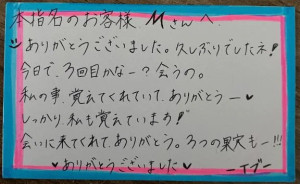 本指名のお客様 Mさんへ
ありがとうございました。久しぶりでしたネ!
今日で、3回目かなー?会うの。
私の事、覚えてくれていて、ありがとうー♥
しっかり、私も覚えています!!
会いに来てくれて、ありがとう。3つの果実もー!!!
♥ありがとうございました♥
ーイブー